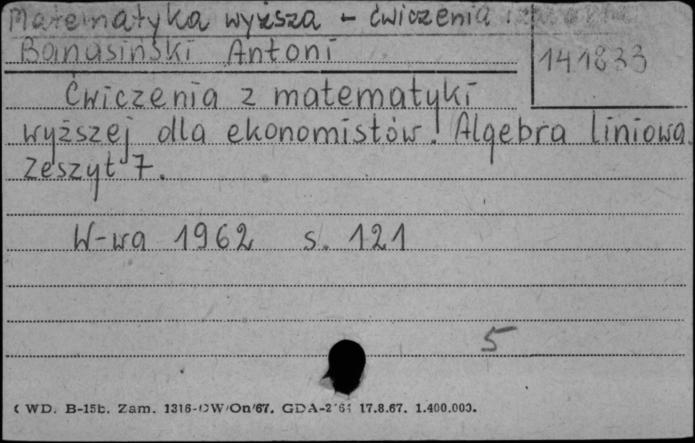 Matematyka wyższa - ćwiczenia
Banasiński Antoni
141833
Ćwiczenia z matematyki
wyższej dla ekonomistów. Algebra liniowa.
Zeszyt 7.
W-wa 1962 s. 121
5
WD. B-15b. Zam. 1316-OW/On/67. GDA-2 61 17.8.67. 1.400.000.